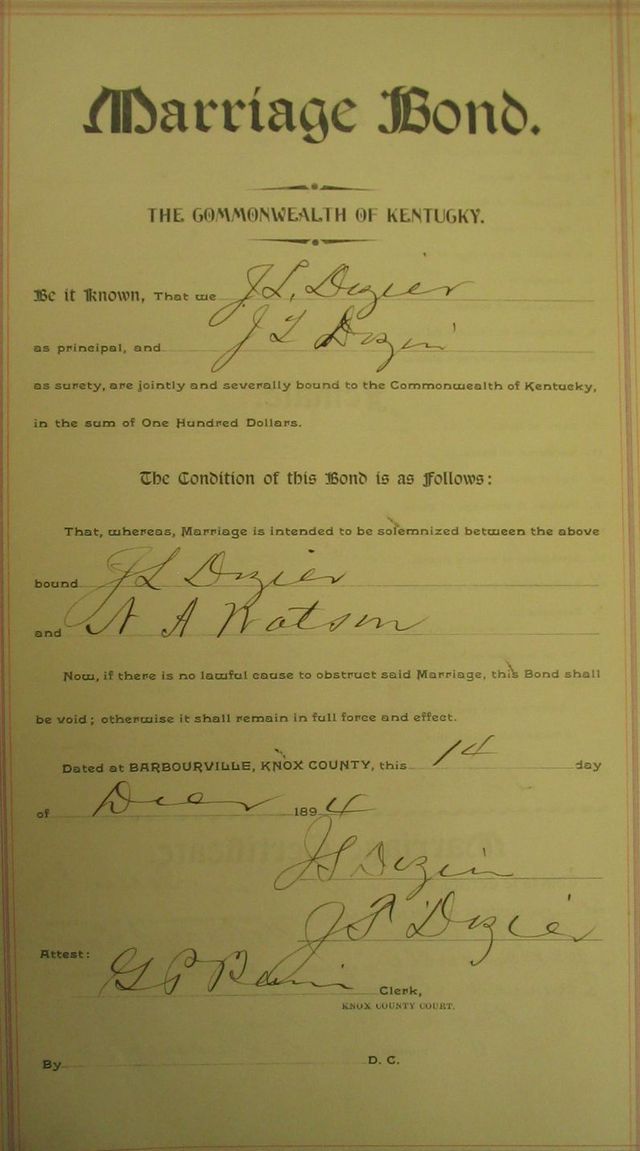 Marriage Bond.
THE COMMONWEALTH OF KENTUCKY.
Be it Known, That we J.L. Dozier
as principal, and J L Dozier
as surety, are jointly and severally bound to the Commonwealth of Kentucky,
in the sum of One Hundred Dollars.
The Condition of this Bond is as Follows:
That, whereas, Marriage is intended to be solemnized between the above
bound J L Dozier
and N A Watson
Now, if there is no lawful cause to obstruct said Marriage, this Bond shall
be void; otherwise it shall remain in full force and effect.
Dated at BARBOURVILLE, KNOX COUNTY, this 14 day
of 1894
J L Dozier
J F Dozier
Attest:
G P Clerk,
KNOX COUNTY COURT.
By D. C.